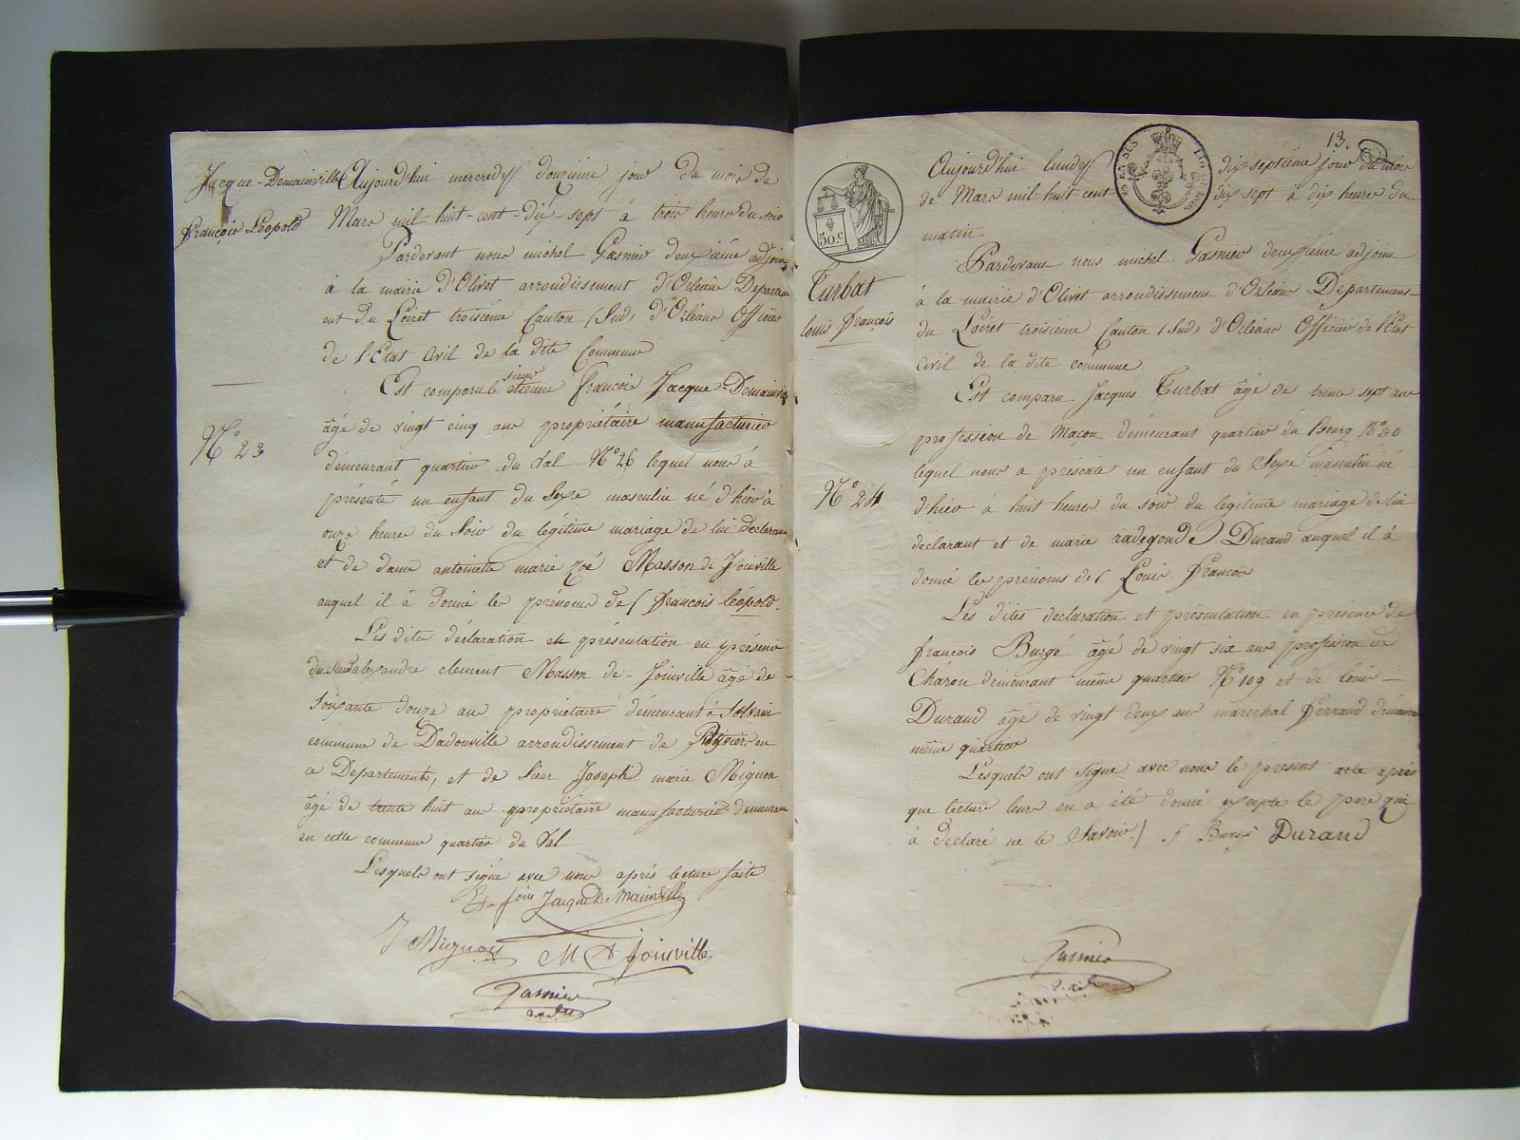 Jacque-Demainville
françois Léopold
N° 23
Aujourd'hui mercredy douzieme jour du mois de
Mars mil-huit-cent-dix sept à trois heure du soir
Pardevant nous michel Gasnier deuxième adjoint
à la mairie d'Olivet arrondissement d'Orléans Departem
ent du Loiret troisième Canton (Sud) d'Orléans Officier
de l'Etat Civil de la dite Commune
Est comparu le sieur etienne françois Jacque-Demainville
âgé de vingt cinq ans propriétaire manufacturier
demeurant quartier du Val N° 26 lequel nous à
présenté un enfant du Sexe masculin né d'hier à
onze heure du Soir du légitime mariage de lui déclarant
et de dame antoinette marie zoé Masson de Joinville
auquel il à donné les prénoms de françois léopold.
Les dite déclaration et présentation en présence
clement Masson de-Joinville âgé de
soixante douze ans propriétaire demeurant à
commune de Dadonville arrondissement de
Departement, et de Sieur Joseph marie Mignon
âgé de trente huit ans propriétaire manufacturier demeurant
en cette commune quartier du Val
Lesquels ont signé avec nous après lecture faite
Jacque Demainville
J Mignon
M D Joinville
Gasnier
13.
50 c
Turbat
louis françois
N° 24
Aujourd'hui lundy dix septième jour du mois
de Mars mil huit cent dix sept à dix heure du
matin
Pardevant nous michel Gasnier deuxième adjoint
à la mairie d'Olivet arrondissement d'Orléans Département
du Loiret troisieme Canton (Sud) d'Orléans Officier de l'Etat
Civil de la dite commune
Est comparu Jacques Turbat âgé de trente sept ans
profession de Maçon demeurant quartier du Bourg N° 40
lequel nous a présenté un enfant du Sexe masculin né
d'hier a huit heures du soir du legitime mariage de lui
declarant et de marie radegonde Durand auquel il à
donné les prénoms de Louis françois
Les dites declaration et présentation en presence de
françois Burgé âgé de vingt six ans profession de
Charon demeurant même quartier N° 109 et de louis
Durand âgé de vingt deux ans marechal ferrand demeurant
même quartier
Lesquels ont signé avec nous le present acte après
que lecture leur en a été donné excepté le pere qui
à declaré ne le Savoir
Burgé Durand
Gasnier